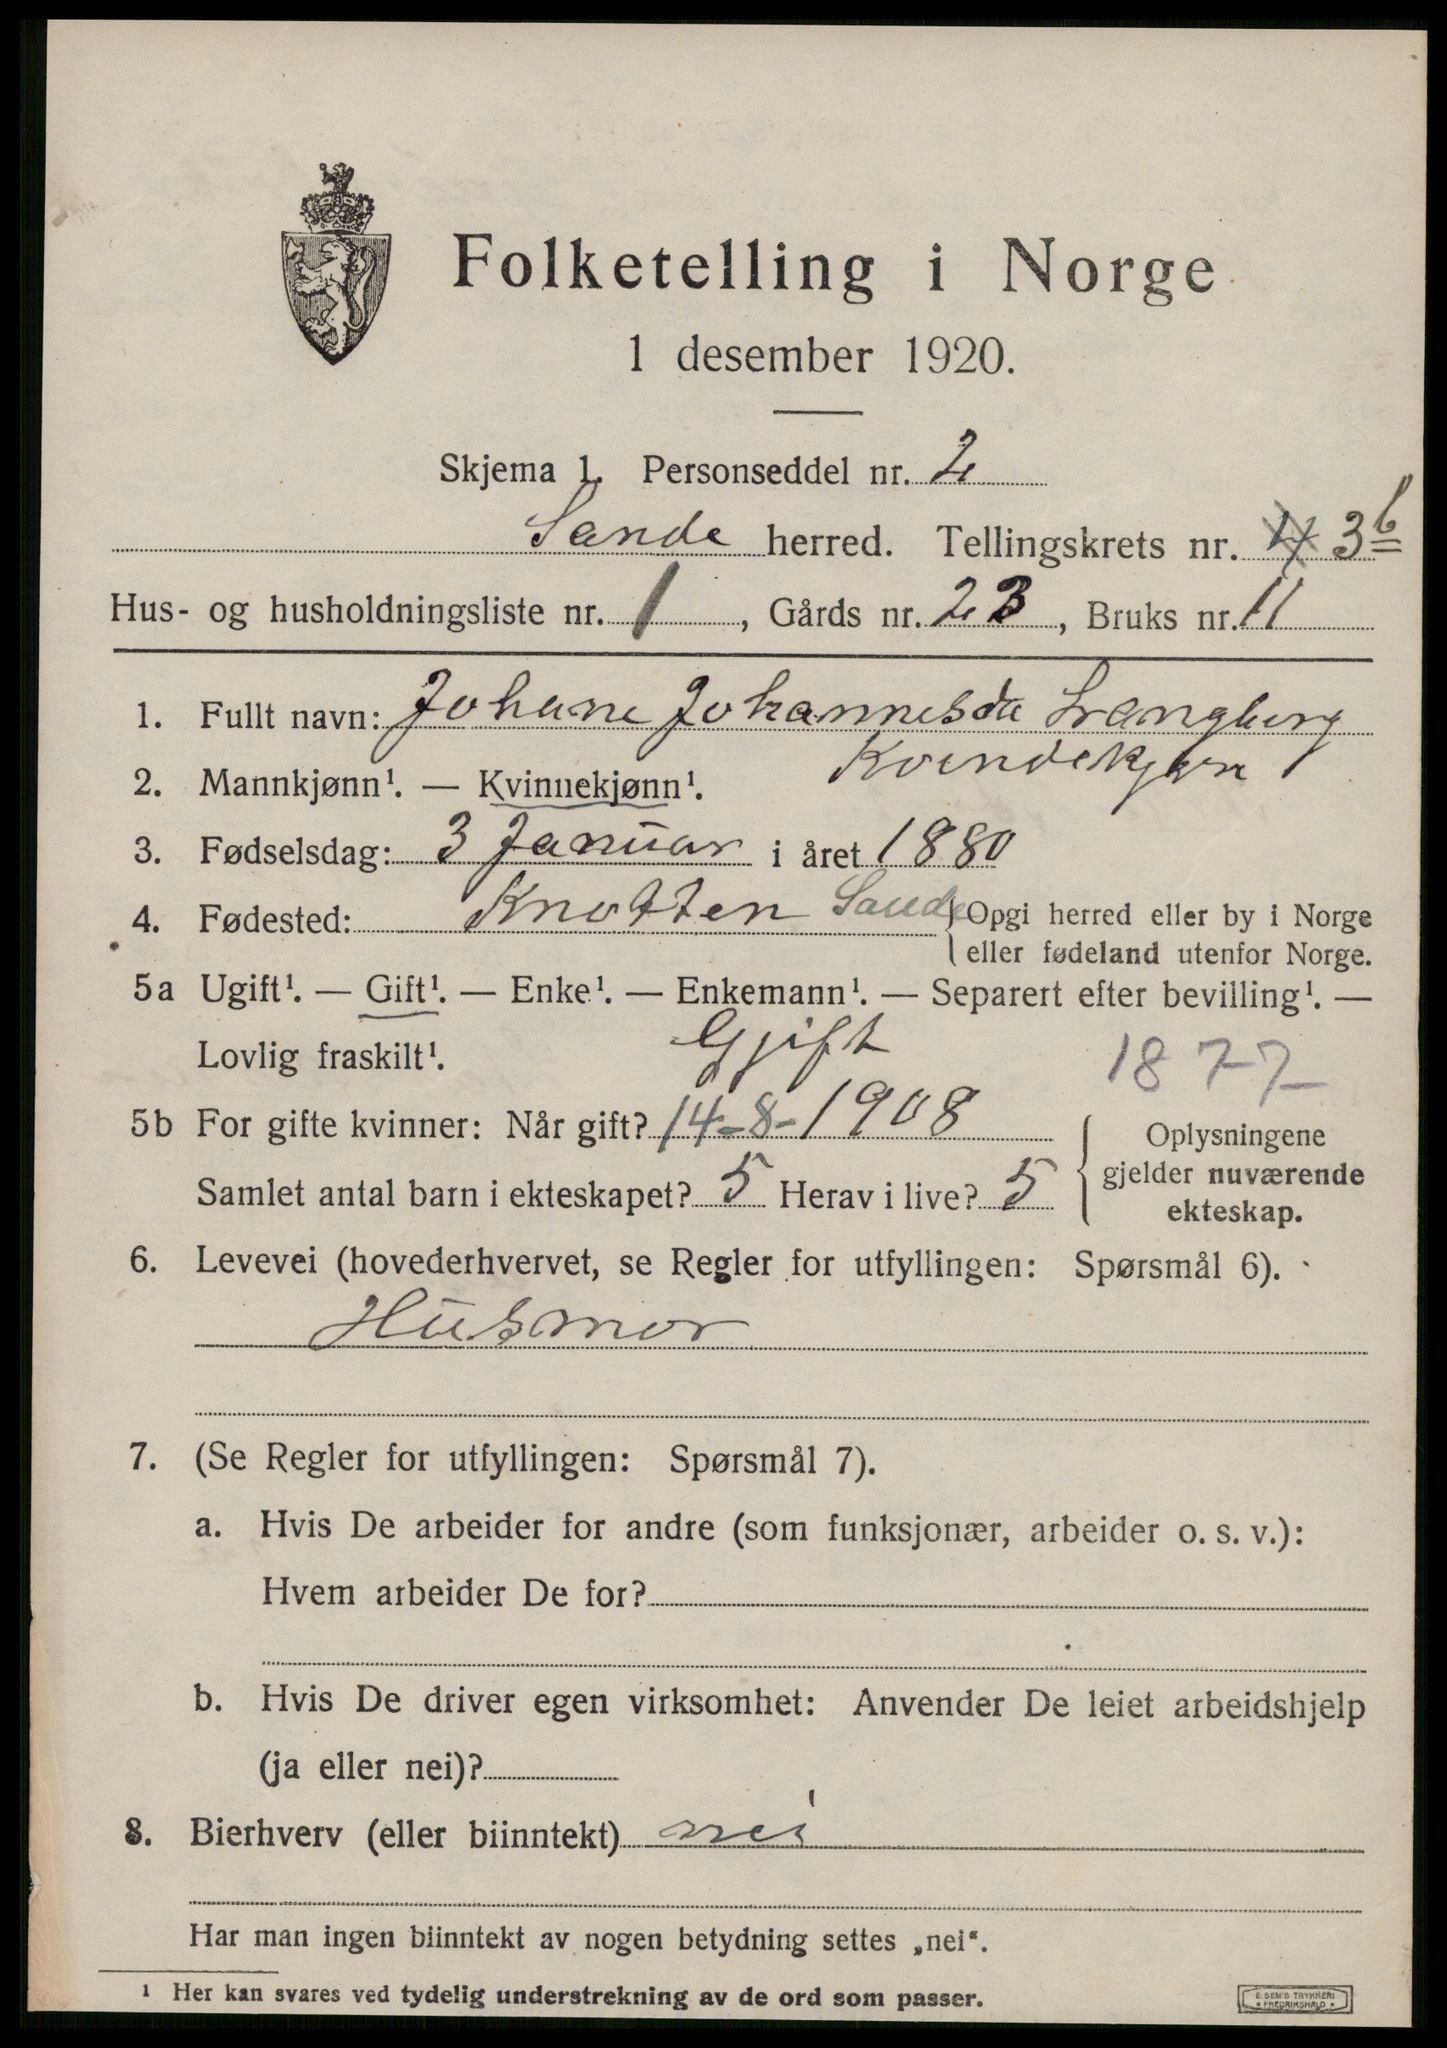 Folketelling i Norge
1 desember 1920.
Skjema 1. Personseddel nr. 2
Sande herred. Tellingskrets nr. 4 3b
Hus- og husholdningsliste nr. 1, Gårds nr. 23, Bruks nr. 11
1. Fullt navn: Johane Johannesda Langberg
2. Mannkjønn¹. — Kvinnekjønn¹. Kvindekjøn
3. Fødselsdag: 3 Januar i året 1880
4. Fødested: Knotten Sande { Opgi herred eller by i Norge
eller fødeland utenfor Norge.
5a Ugift¹. — Gift¹. — Enke¹. — Enkemann¹. — Separert efter bevilling¹. —
Lovlig fraskilt¹. Gjift 1877
5b For gifte kvinner: Når gift? 14-8-1908
Samlet antal barn i ekteskapet? 5 Herav i live? 5
{ Oplysningene
gjelder nuværende
ekteskap.
6. Levevei (hovederhvervet, se Regler for utfyllingen: Spørsmål 6).
Husmor
7. (Se Regler for utfyllingen: Spørsmål 7).
a. Hvis De arbeider for andre (som funksjonær, arbeider o. s. v.):
Hvem arbeider De for?
b. Hvis De driver egen virksomhet: Anvender De leiet arbeidshjelp
(ja eller nei)?
8. Bierhverv (eller biinntekt) nei
Har man ingen biinntekt av nogen betydning settes „nei“.
¹ Her kan svares ved tydelig understrekning av de ord som passer.
E. SEM'S TRYKKERI
* FREDRIKSHALD *